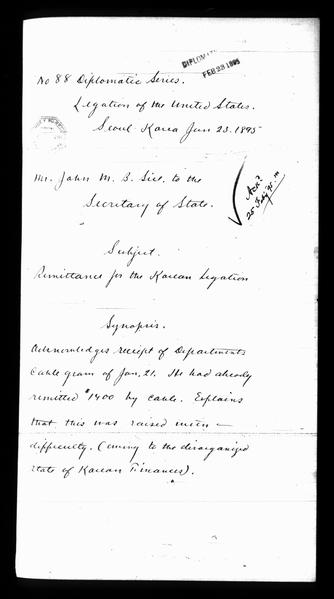 DIPLOMATIC
FEB 23 1895
No 88 Diplomatic Series.
Legation of the United States.
Seoul Korea Jan 23. 1895
Mr. John M. B. Sill, to the
Secretary of State.
Ack'd
25 Feby 95.
Subject.
Remittance for the Korean Legation
Synopsis.
Acknowledges receipt of Departments
Cable gram of Jan. 21. He had already
remitted $1400 by cable. Explains
that this was raised with
difficulty. (owing to the disorganized
state of Korean Finances).